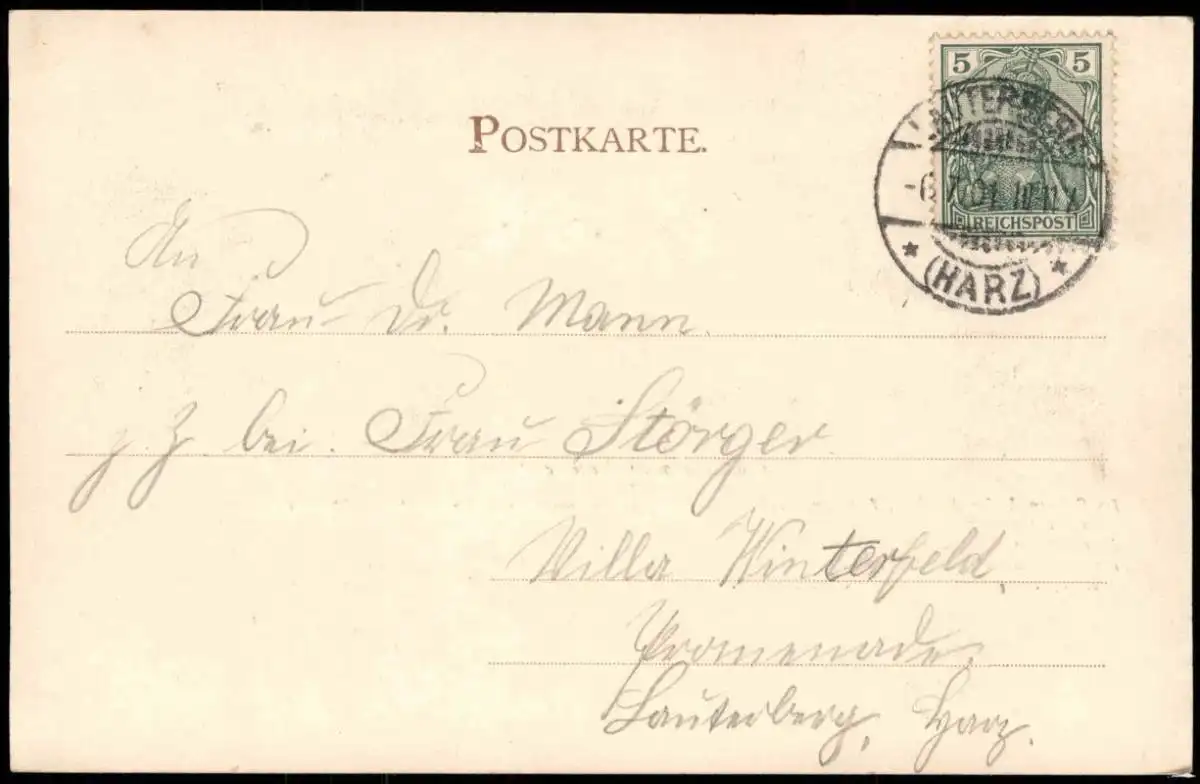 POSTKARTE.
5 5
REICHSPOST
LAUTERBERG
-6.7.01.
* (HARZ) *
An
Frau Dr. Mann.
z. Z. bei. Frau Störger
Villa Winterfeld,
Promenade,
Lauterberg, Harz.